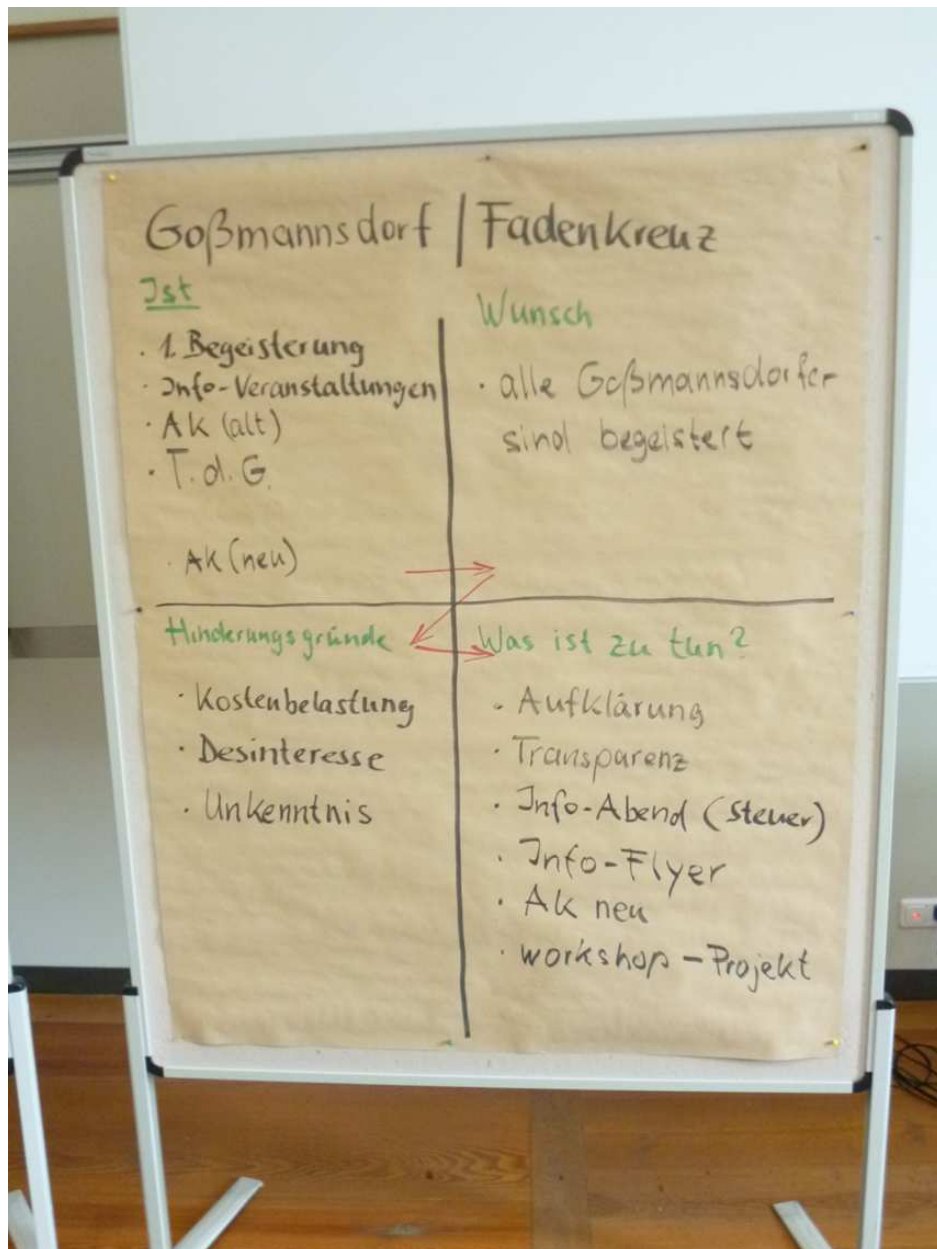 Goßmannsdorf | Fadenkreuz
Ist
· 1. Begeisterung
· Info-Veranstaltungen
· AK (alt)
· T.d.G.
· AK (neu)
Wunsch
· alle Goßmannsdorfer
sind begeistert
Hinderungsgründe
· Kostenbelastung
· Desinteresse
· Unkenntnis
Was ist zu tun?
· Aufklärung
· Transparenz
· Info-Abend (Steuer)
· Info-Flyer
· AK neu
· workshop – Projekt